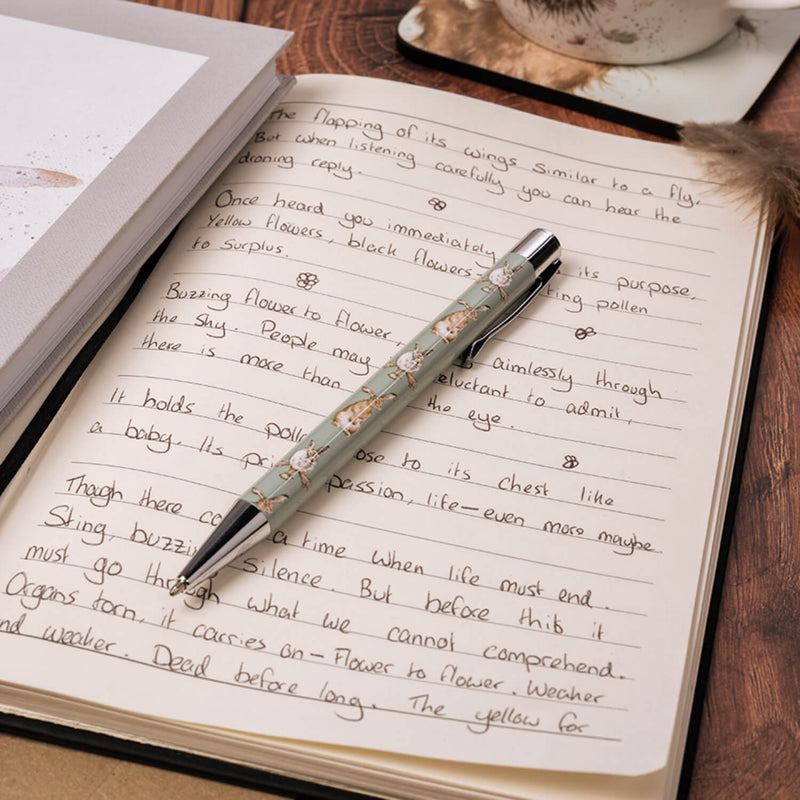 The flapping of its wings similar to a fly.
But when listening carefully you can hear the
droning reply.
Once heard you immediately its purpose,
Yellow flowers, black flowers- ting pollen
to surplus.
Buzzing flower to flower, aimlessly through
the sky. People may eluctant to admit,
there is more than the eye.
It holds the poll ose to its chest like
a baby. Its pri passion, life-even more maybe.
Though there co a time when life must end.
Sting, buzzi Silence. But before this it
must go through what we cannot comprehend.
Organs torn, it carries on - Flower to flower. Weaker
nd weaker. Dead before long. The yellow for